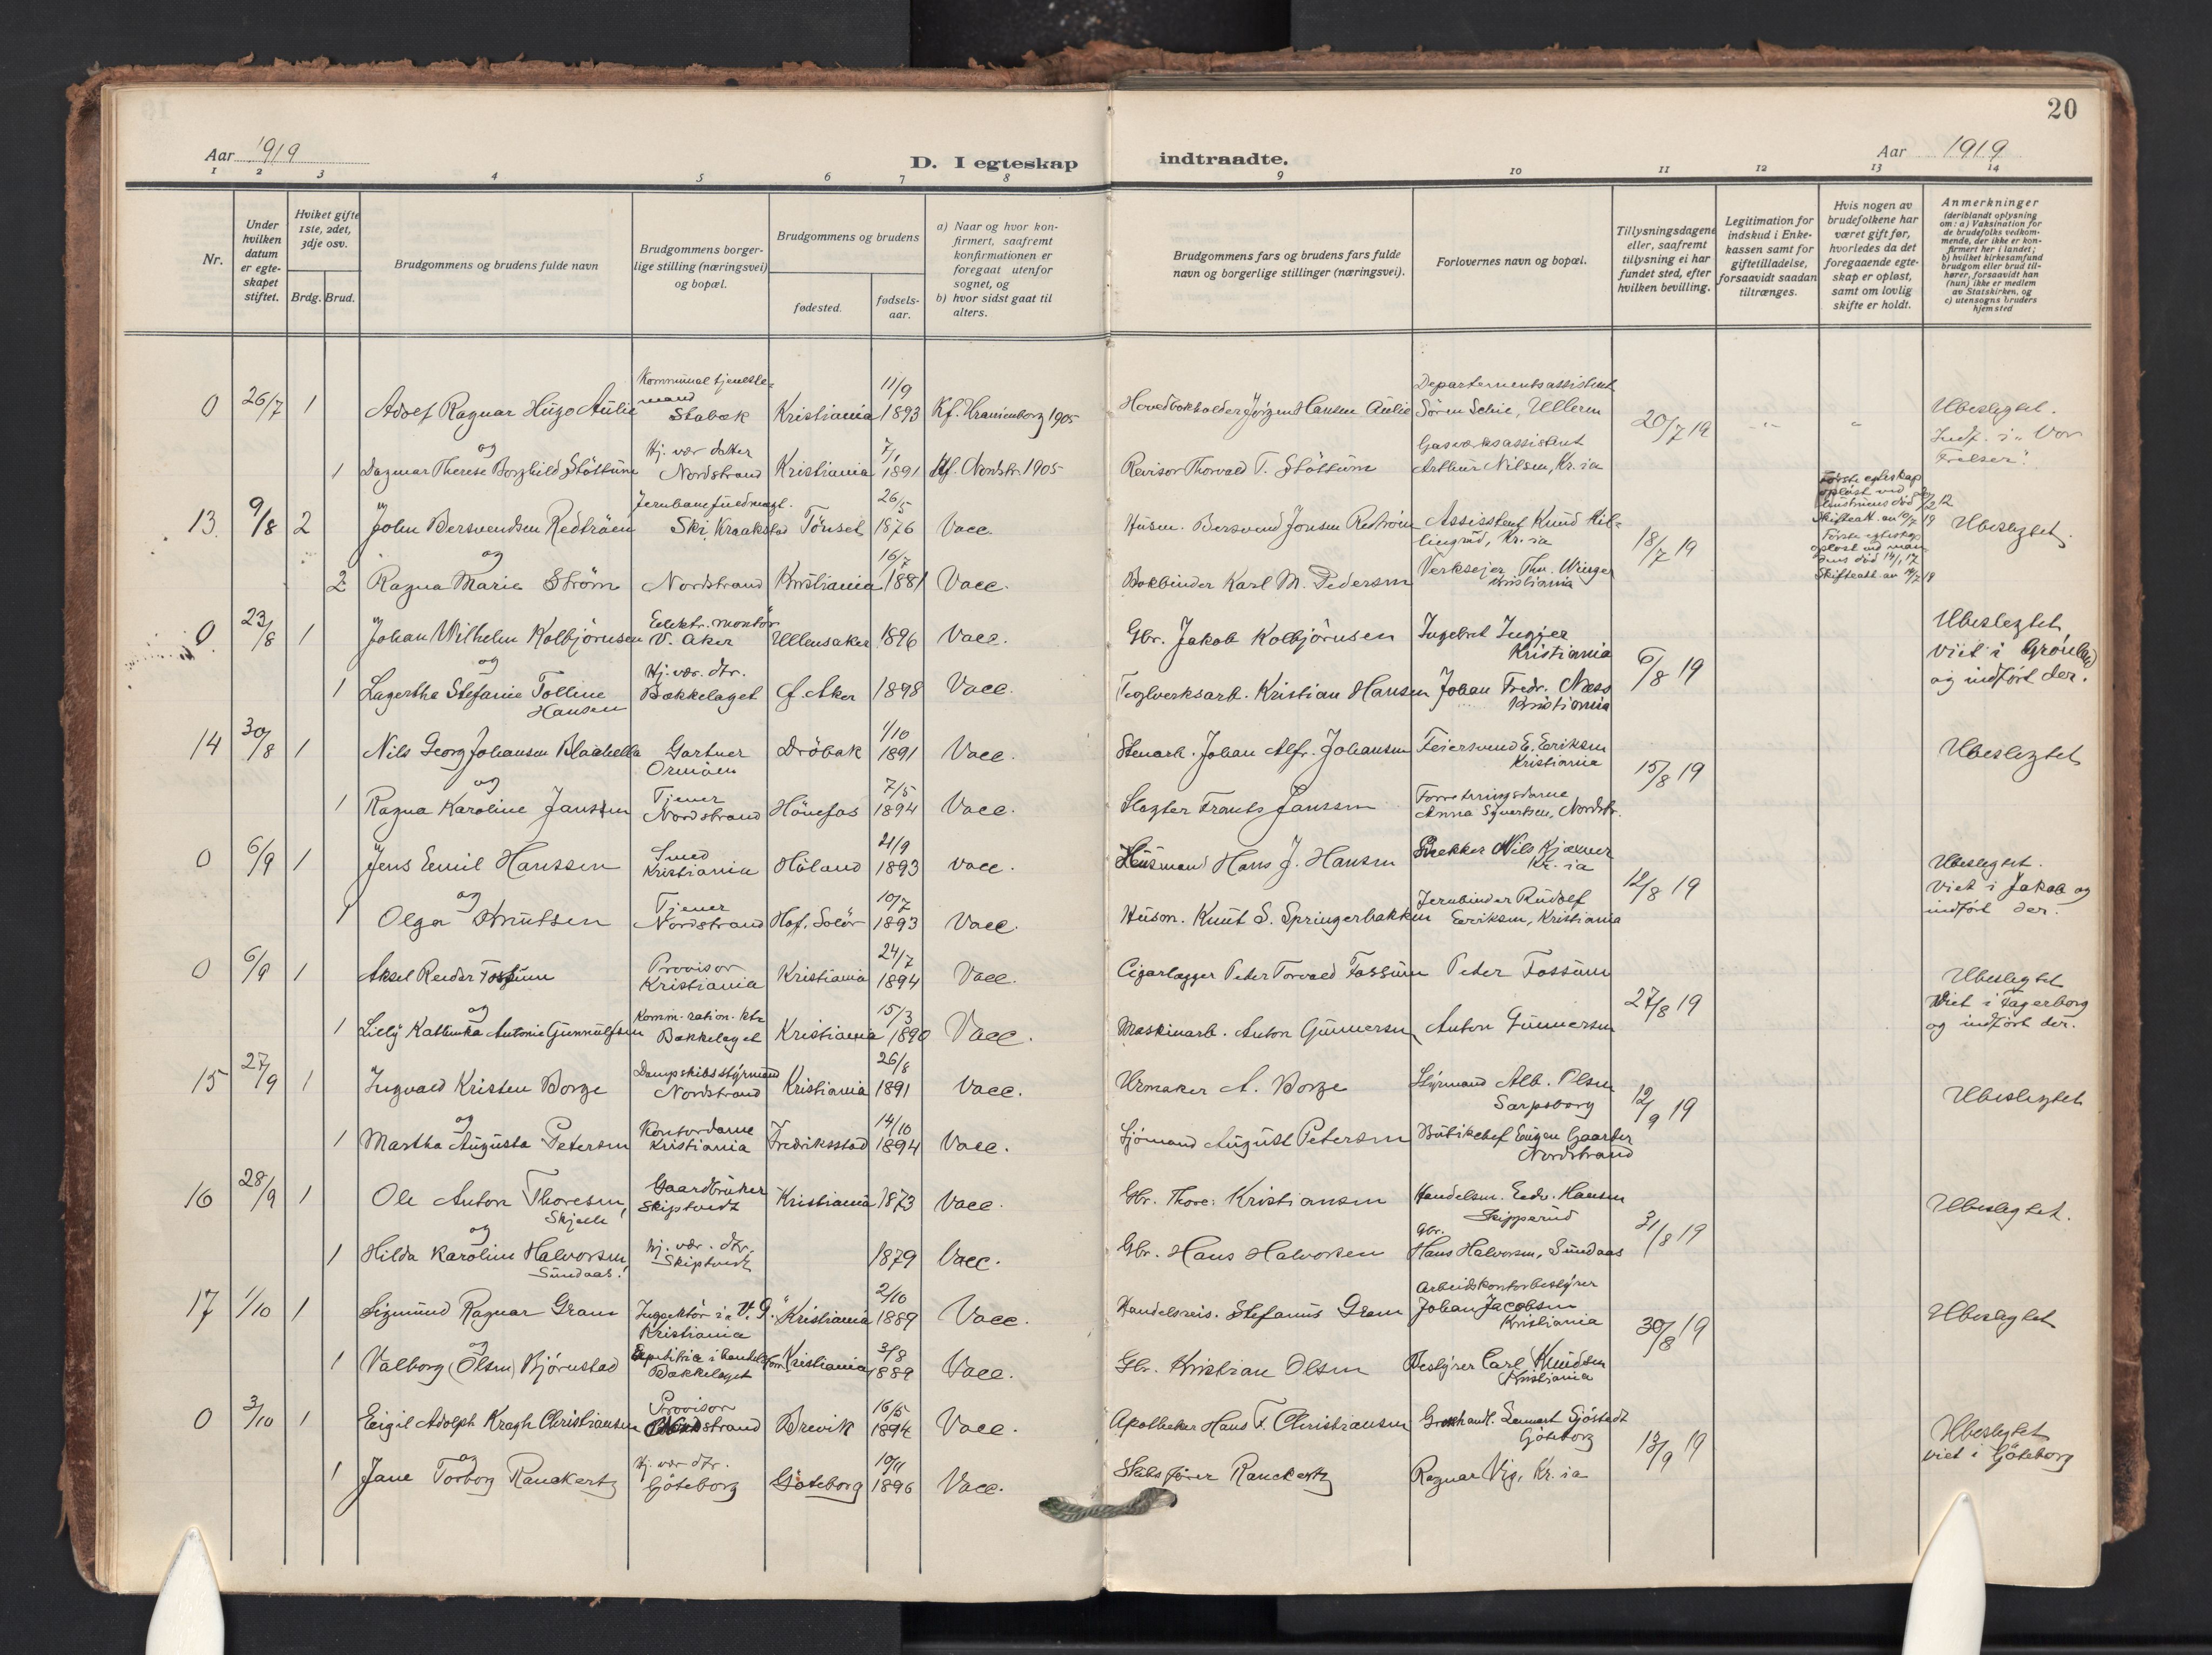 20
Aar 1919
D. I egteskap indtraadte.
Aar 1919
1 2 3 4 5 6 7 8 9 10 11 12 13 14
Nr.
Under hvilken datum er egteskapet stiftet.
Hviket gifte 1ste, 2det, 3dje osv.
Brdg. Brud.
Brudgommens og brudens fulde navn
Brudgommens borgerlige stilling (næringsvei) og bopæl.
Brudgommens og brudens
fødested.
fødsels-aar.
a) Naar og hvor konfirmert, saafremt konfirmationen er foregaat utenfor sognet, og
b) hvor sidst gaat til alters.
Brudgommens fars og brudens fars fulde navn og borgerlige stillinger (næringsvei).
Forlovernes navn og bopæl.
Tillysningsdagene eller, saafremt tillysning ei har fundet sted, efter hvilken bevilling.
Legitimation for indskud i Enkekassen samt for giftetilladelse, forsaavidt saadan tiltrænges.
Hvis nogen av brudefolkene har været gift før, hvorledes da det foregaaende egteskap er opløst, samt om lovlig skifte er holdt.
Anmerkninger
(deriblandt oplysning om: a) Vaksination for de brudefolks vedkommende, der ikke er konfirmert her i landet; b) hvilket kirkesamfund brudgom eller brud tilhører, forsaavidt han (hun) ikke er medlem av Statskirken, og c) utensogns bruders hjemsted
0 26/7 1 Adolf Ragnar Hugo Aulie Kommunal tjenestemand Stabæk Kristiania 11/9 1893 Kf. Uranienborg 1905 Hovedbokholder Jørgen Hansen Aulie Departementsassistent Søren Schie, Ullern 20/7 19 Ubeslegtet. Indf. i "Vor Frelser".
og
1 Dagmar Therese Borghild Støttum Hj. vær. datter Nordstrand Kristiania 7/1 1891 Kf. Nordstr. 1905 Revisor Thorvald T. Støttum Gasværksassistent Arthur Nilsen, Kr.ia
13. 9/8 2 John Bersvendsen Redtrøen Jernbanefuldmægt. Ski, Kraakstad Tønset 26/5 1876 Vacc. Husm. Bersvend Jonsen Assistent Knud Kr.ia 18/7 19 Første egteskap opløst ved Skifteatt. av 10/7 19 Ubeslegtet.
og
2 Ragna Marie Strøm Nordstrand Kristiania 16/7 1881 Vacc. Bokbinder Karl M. Pedersen Verkseier Th. Winger Kristiania Første egteskap opløst ved mandens død 14/1 17 Skifteatt. av 14/7 19
0 23/8 1 Johan Wilhelm Kolbjørnsen Elektr. montør V. Aker Ullensaker 1896 Vacc. Gbr. Jakob Kolbjørnsen Ingebret Ingier Kristiania 6/8 19 Ubeslegtet viet i Grønland og indført der.
og
1 Lagertha Stefanie Telline Hansen Hj. vær. dtr. Bækkelaget Ø. Aker 1898 Vacc. Teglverksarb. Kristian Hansen Johan Fredr. Næss Kristiania
14 30/8 1 Nils Georg Johansen Blaabella Gartner Ormøen Drøbak 1/10 1891 Vacc. Stenarb. Johan Alfr. Johansen Feiersvend E. Eriksen Kristiania 15/8 19 Ubeslegtet
og
1 Ragna Karoline Janssen Tjener Nordstrand Hønefos 7/5 1894 Vacc. Slagter Frants Janssen Forretningsdame Anna Syvertsen, Nordstr.
0 6/9 1 Jens Emil Hanssen Smed Kristiania Høland 21/9 1893 Vacc. Husmand Hans J. Hansen Snekker Nils Kjærner Kr.ia 12/8 19 Ubeslegtet. Viet i Jakob og indført der.
og
1 Olga Knutsen Tjener Nordstrand Hof, Solør 10/7 1893 Vacc. Husm. Knut S. Springerbakken Jernbinder Rudolf Eriksen, Kristiania
0 6/9 1 Aksel Reidar Fossum Provisor Kristiania Kristiania 24/7 1894 Vacc. Cigarlagger Peter Torvald Fossum Peter Fossum 27/8 19 Ubeslegtet Viet i Fagerborg og indført der.
og
1 Lilly Kathinka Antonie Gunnulfsen Komm. ration. ktr. Bækkelaget Kristiania 15/3 1890 Vacc. Maskinarb. Anton Gunnersen Anton Gunnersen
15 27/9 1 Ingvald Kristen Borge Dampskibsstyrmand Nordstrand Kristiania 26/8 1891 Vacc. Urmaker A. Borge Styrmand Alb. Olsen Sarpsborg 12/9 19 Ubeslegtet
og
1 Martha Augusta Petersen Kontordame Kristiania Fredriksstad 14/10 1894 Vacc. Sjømand August Petersen Butikchef Eugen Gaarder Nordstrand
16 28/9 1 Ole Anton Thoresen Gaardbruker Skiptvedt Kristiania 1873 Vacc. Gbr. Thore Kristiansen Handelsm. Edv. Hansen Skipperud 31/8 19 Ubeslegtet.
og
1 Hilda Karoline Halvorsen Sundaas! hj. vær. dtr. Skiptvedt 1879 Vacc. Gbr. Hans Halvorsen Gbr. Hans Halvorsen, Sundaas
17 1/10 1 Sigmund Ragnar Gram Inspektør i Kristiania Kristiania 2/10 1889 Vacc. Handelsreis. Stefanus Gram Arbeidskontorbestyrer Johan Jacobsen Kristiania 30/8 19 Ubeslegtet
og
1 Valborg (Olsen) Bjørnstad Bækkelaget Kristiania 3/8 1889 Vacc. Gbr. Kristian Olsen Bestyrer Carl Knudsen Kristiania
0 3/10 1 Eigil Adolph Kragh Christiansen Provisor Nordstrand Brevik 16/5 1894 Vacc. Apotheker Hans F. Christiansen Grosshandl. Lennart Sjöstedt Göteborg 13/9 19 Ubeslegtet viet i Göteborg
og
1 Jane Torborg Ranckertz Hj. vær dtr. Göteborg Göteborg 10/11 1896 Vacc. Skibsfører Ranckertz Ragnar Vig, Kr.ia